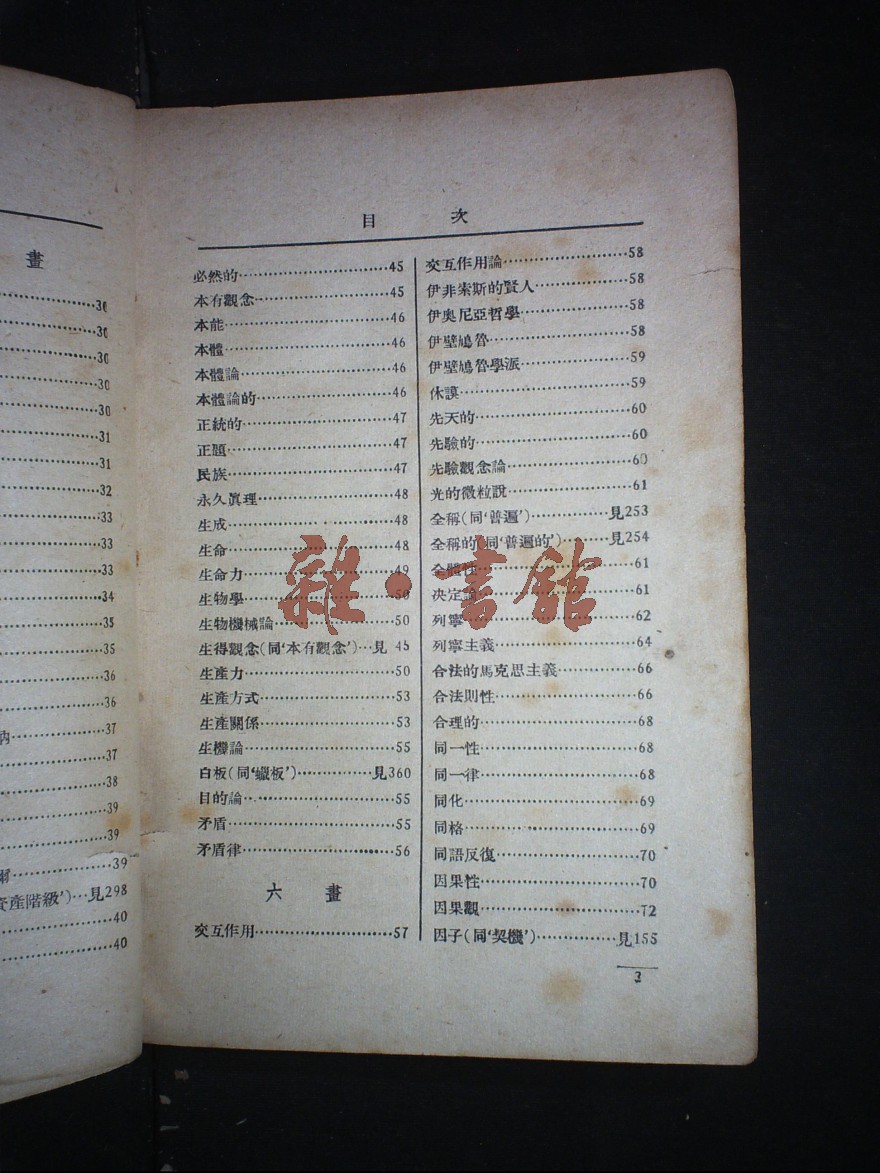 畫
30
30
30
30
30
31
31
32
33
33
33
34
35
35
36
36
37
37
38
39
39
39
資產階級’)…見298
40
40
目 次
必然的…45
本有觀念…45
本能…46
本體…46
本體論…46
本體論的…46
正統的…47
正題…47
民族…47
永久眞理…48
生成…48
生命…48
生命力…49
生物學…50
生物機械論…50
生得觀念(同‘本有觀念’)…見 45
生產力…50
生產方式…53
生產關係…53
生機論…55
白板(同‘蠟板’)…見360
目的論…55
矛盾…55
矛盾律…56
六 畫
交互作用…57
交互作用論…58
伊非索斯的賢人…58
伊奧尼亞哲學…58
伊壁鳩魯…58
伊壁鳩魯學派…59
休謨…59
先天的…60
先驗的…60
先驗觀念論…60
光的微粒說…61
全稱(同‘普遍’)…見253
全稱的(同‘普遍的’)…見254
全體性…61
决定論…61
列寧…62
列寧主義…64
合法的馬克思主義…66
合法則性…66
合理的…68
同一性…68
同一律…68
同化…69
同格…69
同語反復…70
因果性…70
因果觀…72
因子(同‘契機’)…見155
3
雜·書館